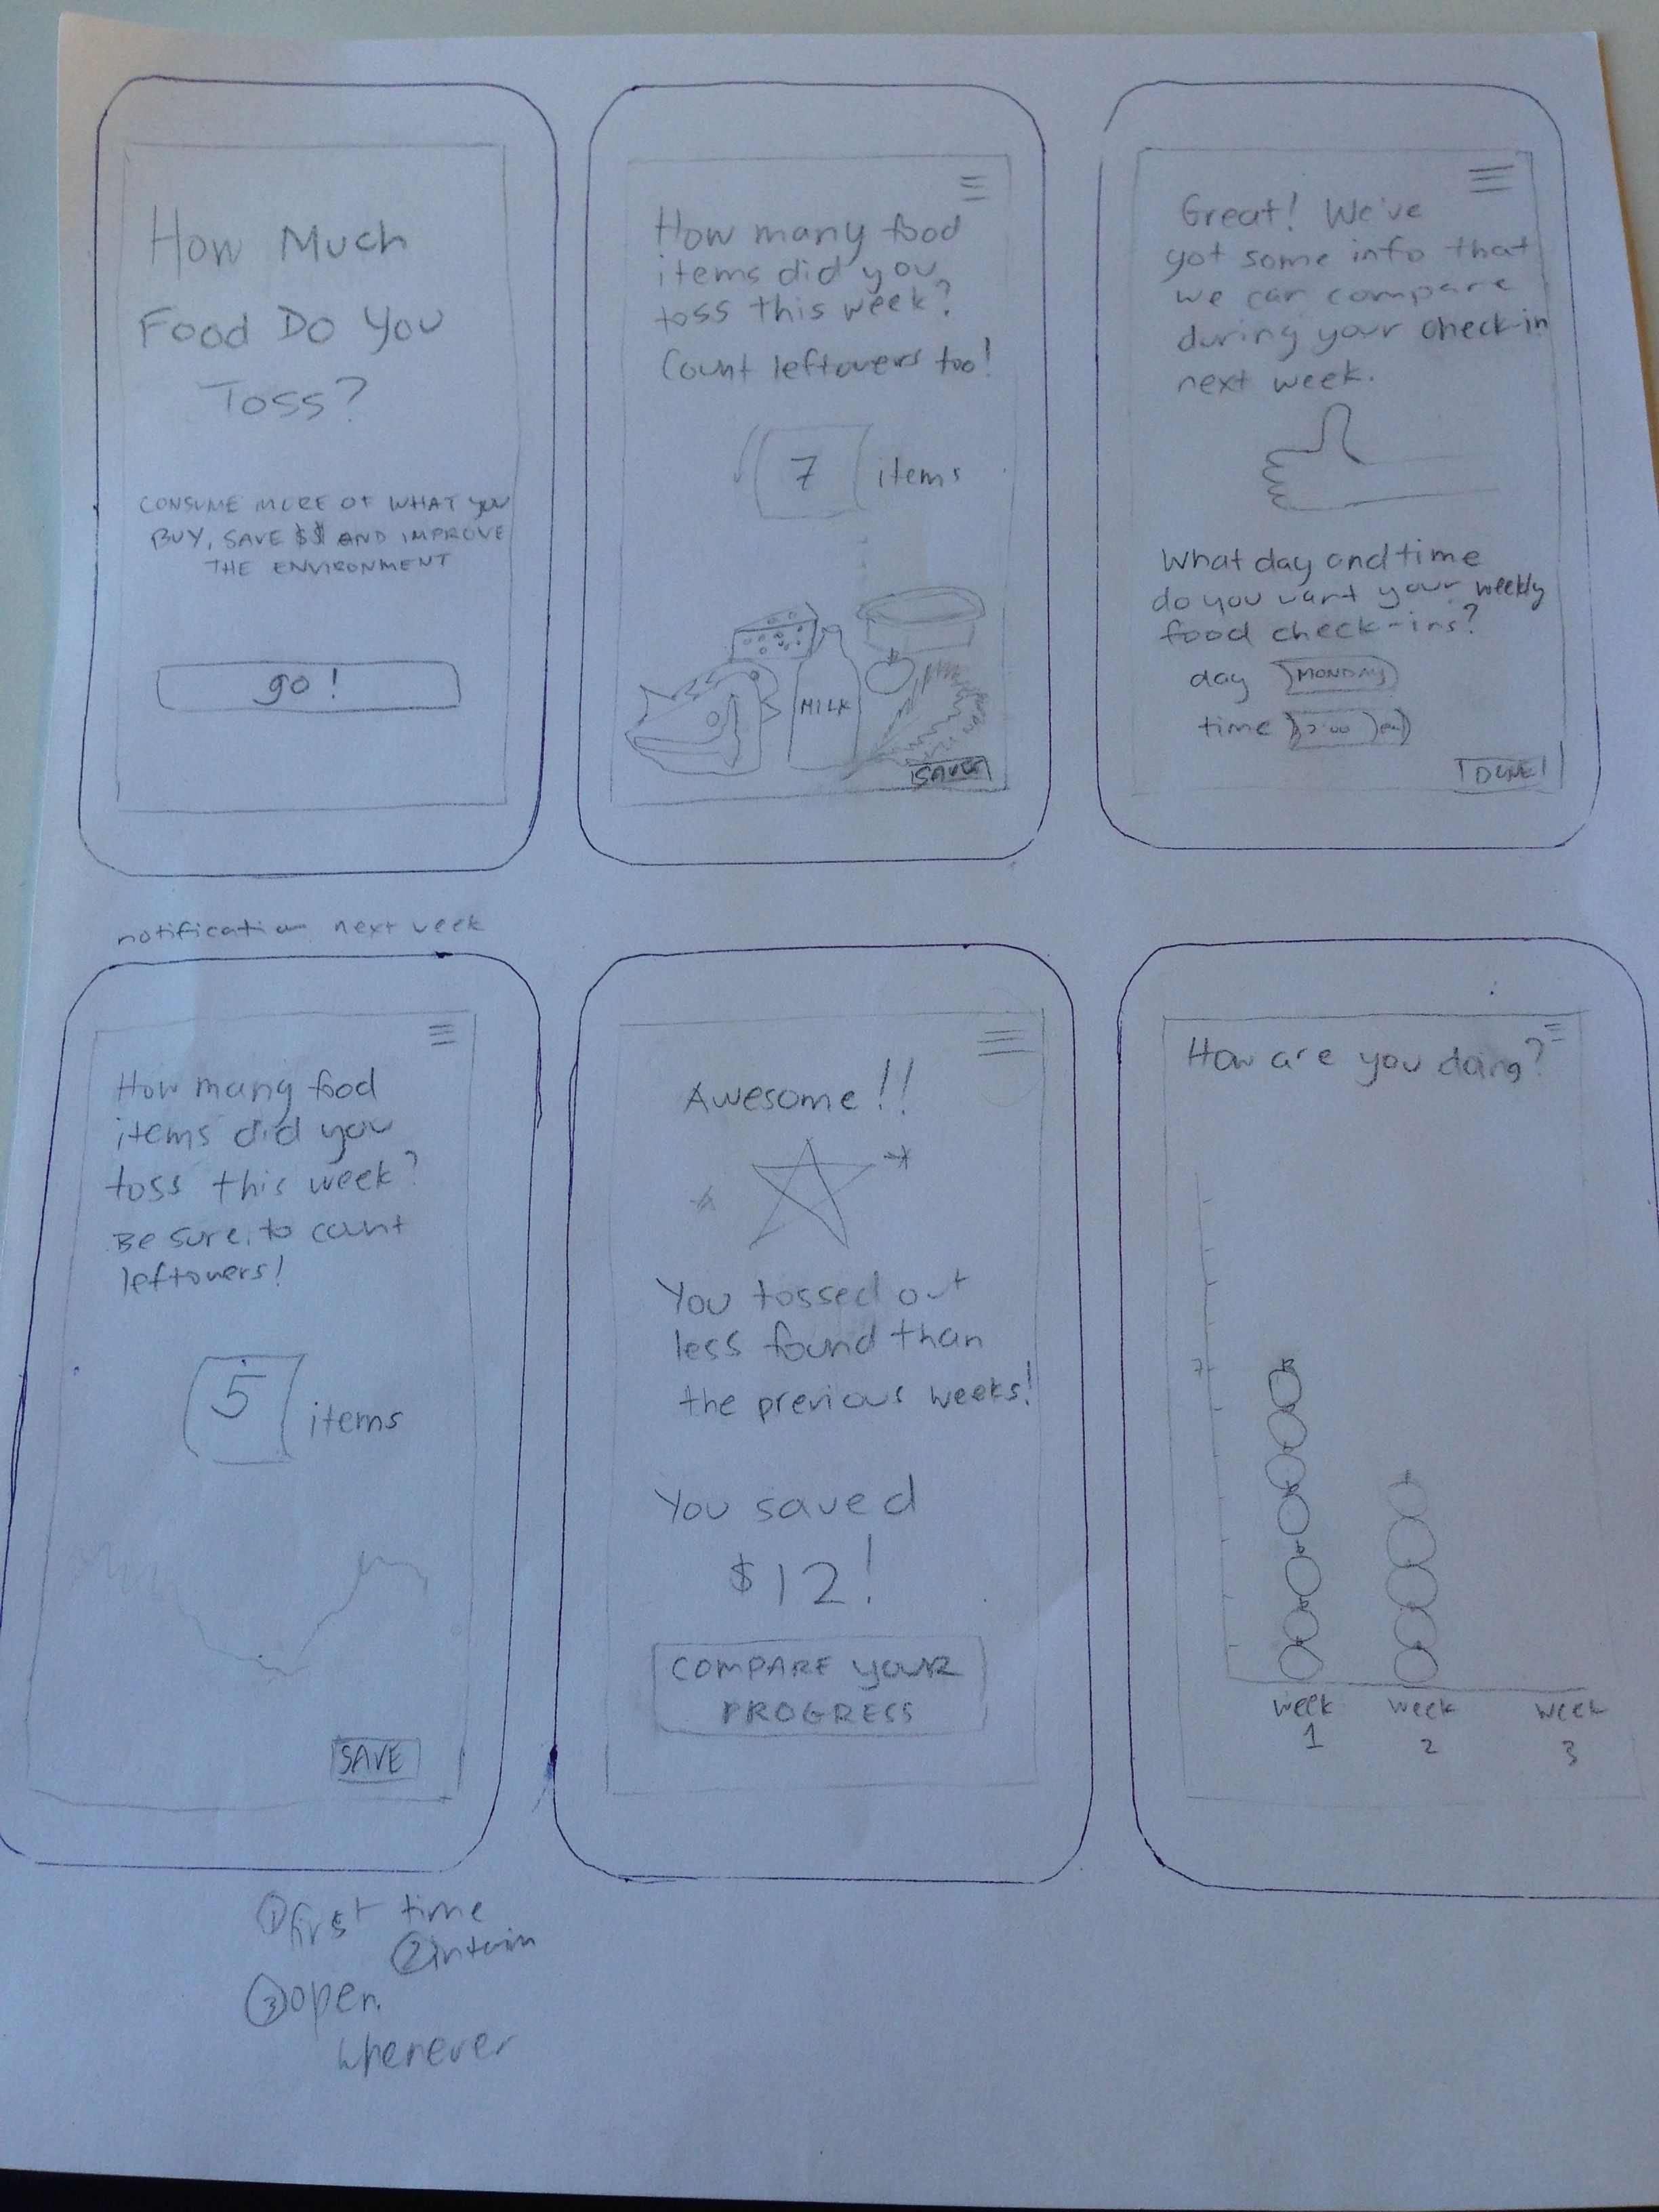 How Much
Food Do You
Toss?
CONSUME MORE OF WHAT YOU
BUY, SAVE $$ AND IMPROVE
THE ENVIRONMENT
go!
How many food
items did you
toss this week?
Count leftovers too!
7 items
MILK
SAVE
Great! We've
got some info that
we can compare
during your check-in
next week.
What day and time
do you want your weekly
food check-ins?
day MONDAY
time
DONE!
notification next week
How many food
items did you
toss this week?
Be sure to count
leftovers!
5 items
SAVE
Awesome!!
You tossed out
less found than
the previous weeks!
You saved
$12!
COMPARE YOUR
PROGRESS
How are you doing?
7
week week week
1 2 3
① first time
②
③ open
whenever